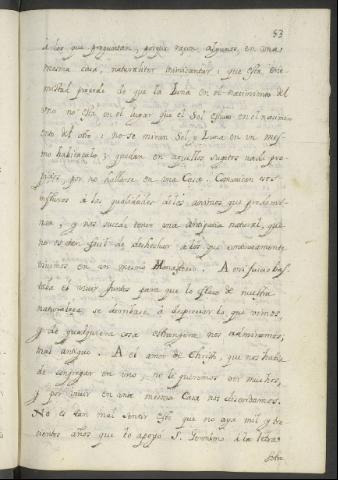 53
á los que preguntan, porque nacen algunos, en una
mesma casa, naturaliter inimicantur: que esta ene-
mistad procede de que la Luna en el nacimiento del
uno no esta en el lugar que el Sol estuuo en el nacimi-
ento del otro: no se miran Sol, y Luna en un mes-
mo habitaculo, y quedan en aquellos sugetos nada pro-
picios, por no hallarse en una Casa. Comunican esos
influxos á las qualidades de los animos que predomi-
nan, y nos suceda tener una antipatia natural, que
no es tan facil de deshechar á los que continuamente
viuimos en un mesmo Monasterio. A mi juicio bas-
taba el viuir juntos para que lo flaco de nuestra
naturaleza se derribase á despreciar lo que vemos,
y de qualquiera cosa estrangera nos admiramos;
mal antiguo. A el amor de Christo, que nos habia
de congregar en uno, no le queremos ver muchos,
y por viuir en una mesma Casa nos discordamos.
No es tan mal sentir esto que no aya mil y tre-
cientos años que lo apoyó S. Geronimo á la letra
sobre